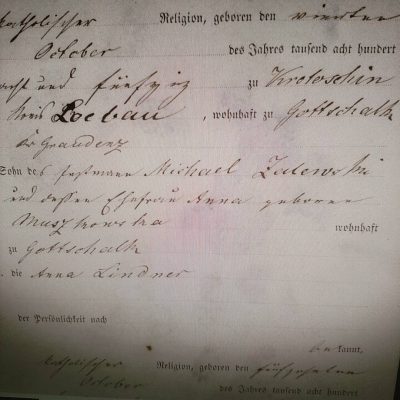 katholischer Religion, geboren den vierten
October des Jahres tausend acht hundert
acht und fünfzig zu Krotoschin
Kreis Loebau, wohnhaft zu Gottschalk
Kr Graudenz
Sohn des Michael Zalewski
und dessen Ehefrau Anna geborene
Muszkowska wohnhaft
zu Gottschalk
. die Anna Lindner
der Persönlichkeit nach
be kannt,
katholischer Religion, geboren den fünfzehnten
October des Jahres tausend acht hundert